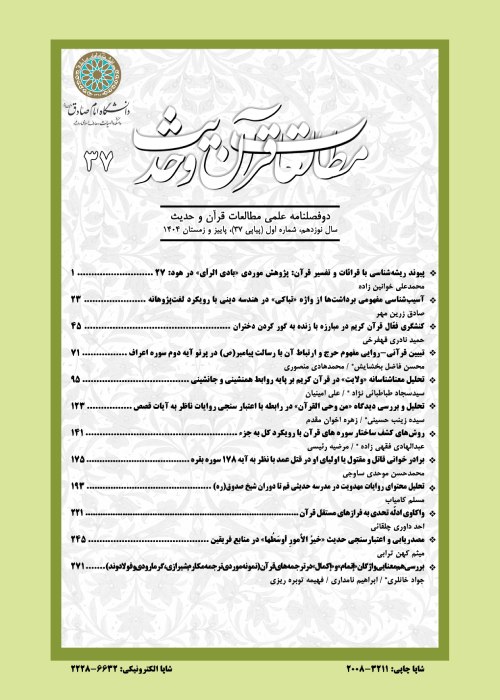 دانشگاه امام صادق
مطالعات قرآن و حدیث
۳۷
دوفصلنامه علمی مطالعات قرآن و حدیث
سال نوزدهم، شماره اول (پیاپی ۳۷)، پاییز و زمستان ۱۴۰۴
پیوند ریشه‌شناسی با قرائات و تفسیر قرآن: پژوهش موردی «بادی الرأی» در هود: ۲۷ ........................... ۱
محمدعلی خوانین زاده
آسیب‌شناسی مفهومی برداشت‌ها از واژه «تباکی» در هندسه دینی با رویکرد لغت‌پژوهانه ...................... ۲۳
صادق زرین مهر
کنشگری فعّال قرآن کریم در مبارزه با زنده به گور کردن دختران ..................................................... ۴۵
حمید نادری قهفرخی
تبیین قرآنی-روایی مفهوم حرج و ارتباط آن با رسالت پیامبر(ص) در پرتو آیه دوم سوره اعراف ................ ۷۱
محسن فاضل بخشایش* / محمدهادی منصوری
تحلیل معناشناسانه «ولایت» در قرآن کریم بر پایه روابط همنشینی و جانشینی .................................. ۹۵
سیدسجاد طباطبائی نژاد * / علی امینیان
تحلیل و بررسی دیدگاه «من وحی القرآن» در رابطه با اعتبار سنجی روایات ناظر به آیات قصص ................ ۱۲۳
سیده زینب حسینی* / زهره اخوان مقدم
روش‌های کشف ساختار سوره های قرآن با رویکرد کل به جزء ...................................................... ۱۴۱
عبدالهادی فقهی زاده * / مرضیه رئیسی
برادر خوانی قاتل و مقتول یا اولیای او در قتل عمد با نظر به آیه ۱۷۸ سوره بقره ................................. ۱۷۵
محمدحسن موحدی ساوجی
تحلیل محتوای روایات مهدویت در مدرسه حدیثی قم تا دوران شیخ صدوق(ره) ................................ ۱۹۳
مسلم کامیاب
واکاوی ادلّه تحدی به فرازهای مستقل قرآن ............................................................................ ۲۲۱
احد داوری چلقائی
مصدریابی و اعتبارسنجی حدیث «خیرُ الأمورِ أوسَطُها» در منابع فریقین ....................................... ۲۴۵
میثم کهن ترابی
بررسی هم‌معنایی واژگان «إتمام» و «إکمال» در ترجمه‌های قرآن (نمونه موردی ترجمه مکارم شیرازی، گرمارودی و فولادوند) ...... ۲۷۱
جواد خانلری* / ابراهیم نامداری / فهیمه توبره ریزی
شاپا چاپی: ۳۲۱۱-۲۰۰۸
شاپا الکترونیکی: ۶۶۳۲-۲۲۲۸